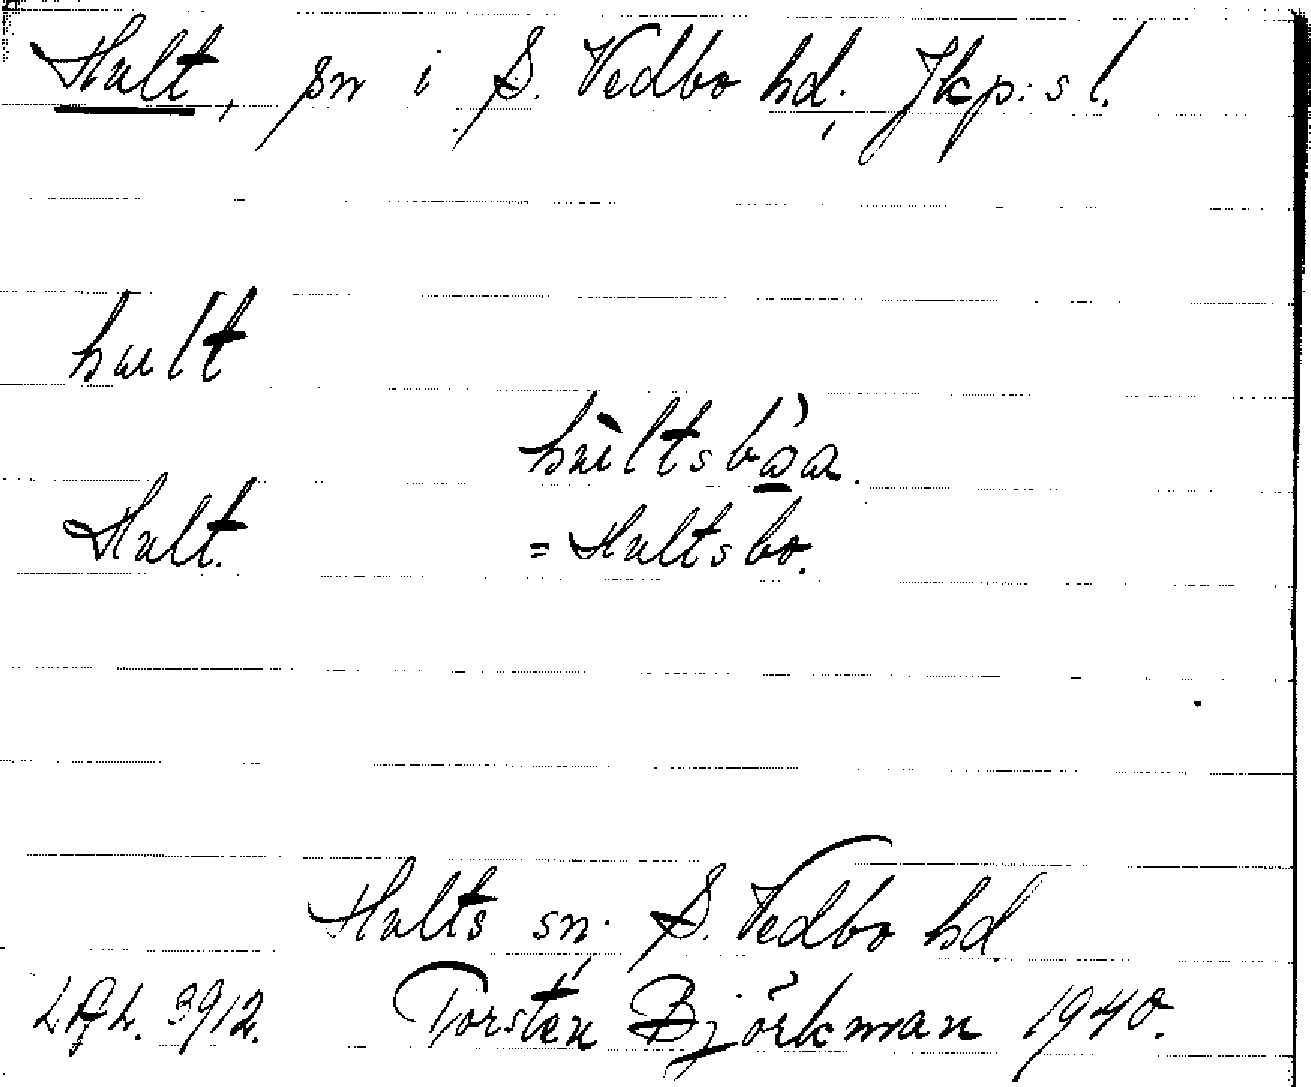 Hult, sn i S. Vedbo hd. Jkp:s l.
hult
hùltsbòa.
Hult.
= Hultsbo.
Hults sn. S. Vedbo hd
3912. Torsten Björkman 1940.